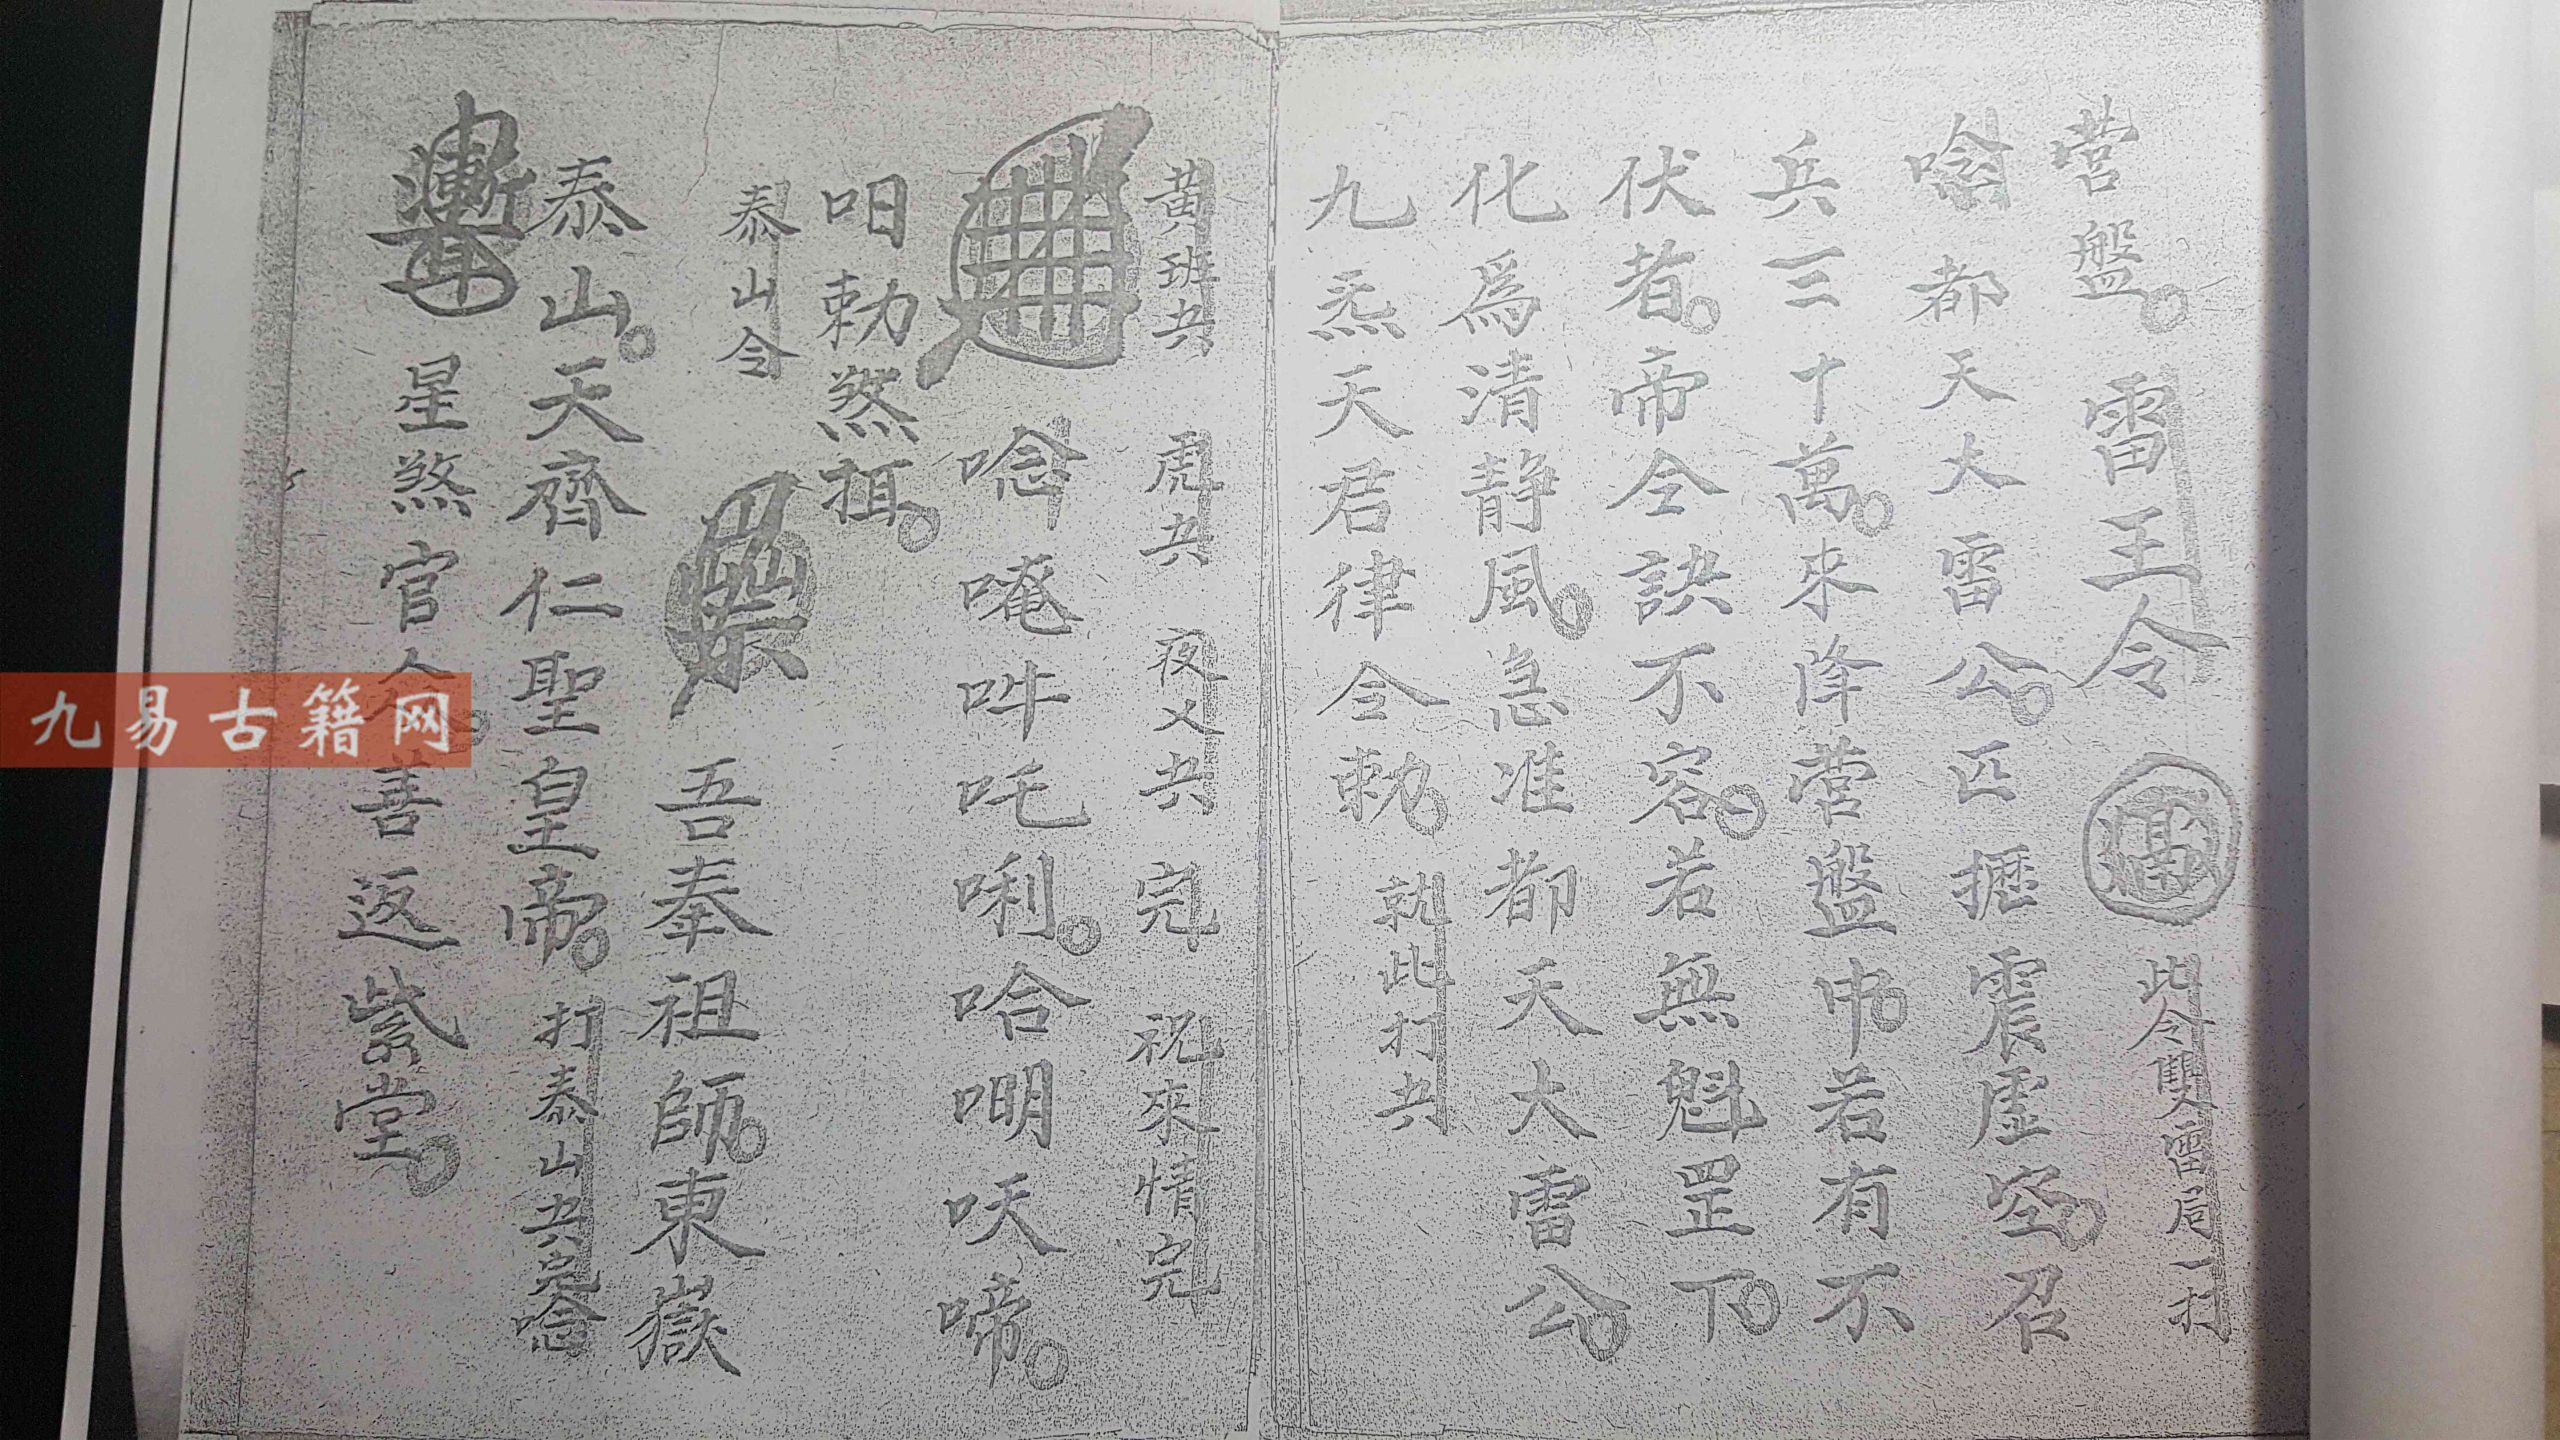 营盤。雷王令 此令雙雷局一打
唸都天大雷公。匹攊震虚空。召
兵三十萬。來降营盤中。若有不
伏者。帝令訣不容。若無魁罡下。
化爲清静風。急准都天大雷公。
九炁天君律令勅。就此打共
黄班共 虎共 夜乂共 完 祝來情完
唸唵吽吒唎。哈𠵼㕭啼。
呾勅煞挕。
泰山令 吾奉祖師。東嶽
泰山。天齊仁聖皇帝。打泰山共完唸
星煞官 善返紫堂。
九易古籍网